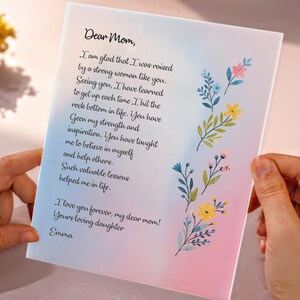 Dear Mom,
I am glad that I was raised
by a strong woman like you.
Seeing you, I have learned
to get up each time I hit the
rock bottom in life. You have
Geen my strength and
inspiration. You have taught
me to believe in myself
and help others.
Such valuable lessons
helped me in life.
I love you forever, my dear mom!
Yours loving daughter
Emma